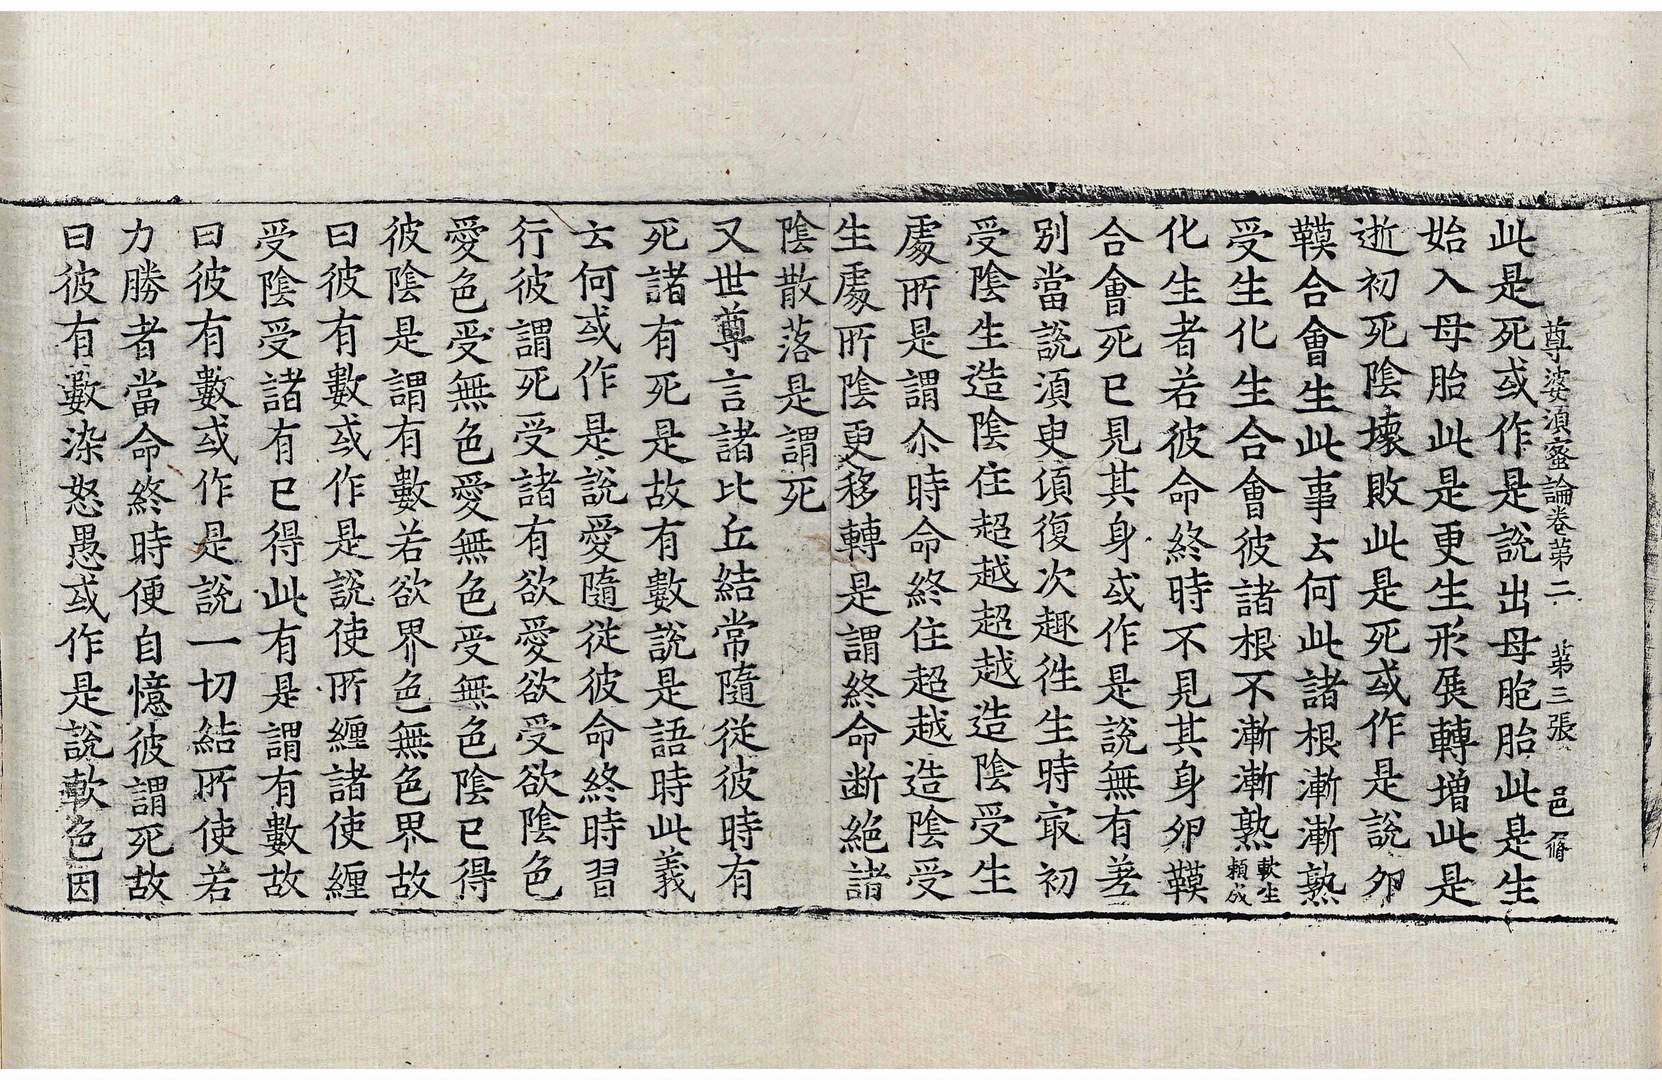 尊婆湏蜜論卷苐二 苐三張 邑 脩
此是死或作是說出母胞胎此是生
始入母胎此是更生形展轉增此是
逝初死陰壞敗此是死或作是說夘
䩨合會生此事云何此諸根漸漸熟
受生化生合會彼諸根不漸漸熟軟生頼成
化生者若彼命終時不見其身夘䩨
合會死已見其身或作是說無有差
別當說湏臾項復次趣徃生時㝡初
受陰生造陰住超越超越造陰受生
處所是謂尒時命終住超越造陰受
生處所陰更移轉是謂終命断絕諸
陰散落是謂死
又世尊言諸比丘結常隨從彼時有
死諸有死是故有數說是語時此義
云何或作是說愛隨從彼命終時習
行彼謂死受諸有欲愛欲受欲陰色
愛色受無色愛無色受無色陰已得
彼陰是謂有數若欲界色無色界故
曰彼有數或作是說使所纏諸使纏
受陰受諸有已得此有是謂有數故
曰彼有數或作是說一切結所使若
力勝者當命終時便自憶彼謂死故
曰彼有數染怒愚或作是說軟色因